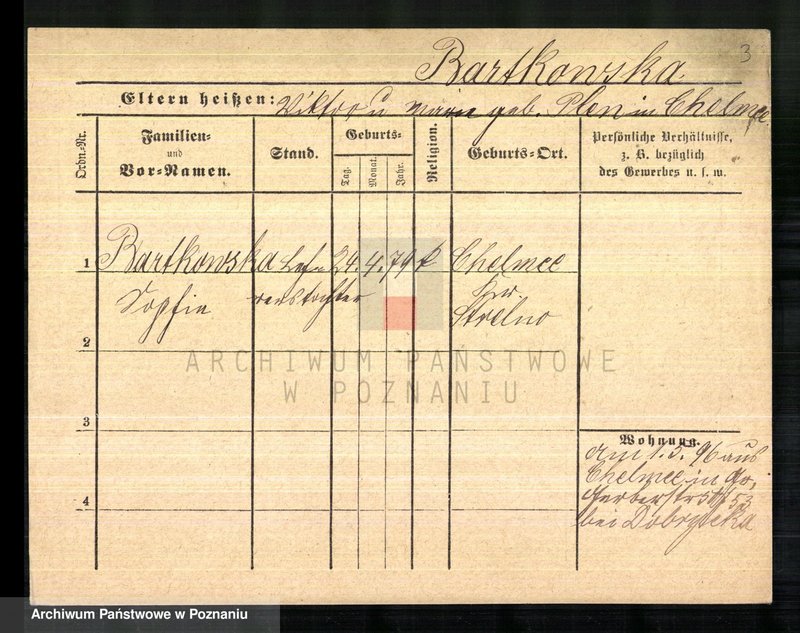 3
Bartkowska
Eltern heißen: Viktor u. geb. Plon in Chelmce
Ordn.-Nr.
Familien-
und
Vor-Namen.
Stand.
Geburts-
Tag.
Monat.
Jahr.
Religion.
Geburts-Ort.
Persönliche Verhältnisse,
z. B. bezüglich
des Gewerbes u. s. w.
1 Bartkowska Leh- 24. 4. 79 k Chelmce
Sophie rerstochter Kr.
Strelno
2
ARCHIWUM PAŃSTWOWE
W POZNANIU
3
Wohnung.
am 1. 5. 96 aus
Chelmce in Gr.
Gerberstr. 53
bei Dobrzycka
4
Archiwum Państwowe w Poznaniu